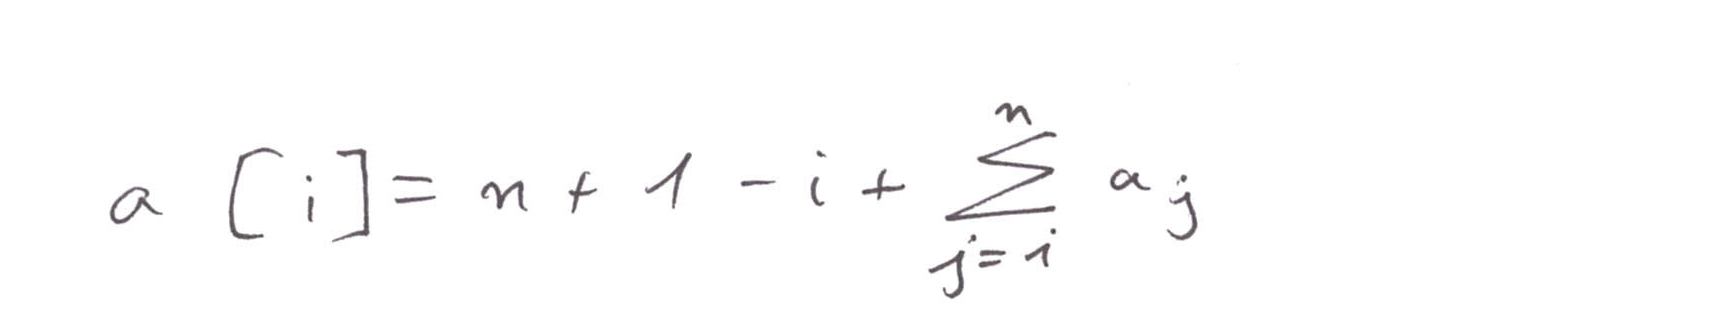 a [i] = n + 1 - i + \sum_{j=i}^{n} a_j